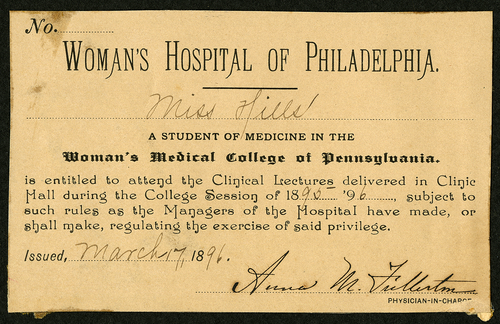 No.
WOMAN'S HOSPITAL OF PHILADELPHIA.
Miss Hills
A STUDENT OF MEDICINE IN THE
Woman's Medical College of Pennsylvania.
is entitled to attend the Clinical Lectures delivered in Clinic
Hall during the College Session of 1895-'96, subject to
such rules as the Managers of the Hospital have made, or
shall make, regulating the exercise of said privilege.
Issued, March 17, 1896.
Anna M. Fullerton
PHYSICIAN-IN-CHARGE